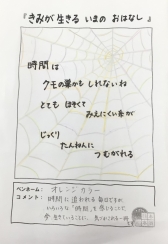 『きみが生きる いまの おはなし』
時間は
クモの巣かも しれないね
とても ほそくて
みえにくい糸が
じっくり
たんねんに
つむがれる
ペンネーム： オレンジカラー
コメント： 時間に追われる毎日ですが、
いろいろな「時間」を感じることで、
今生きていることに、